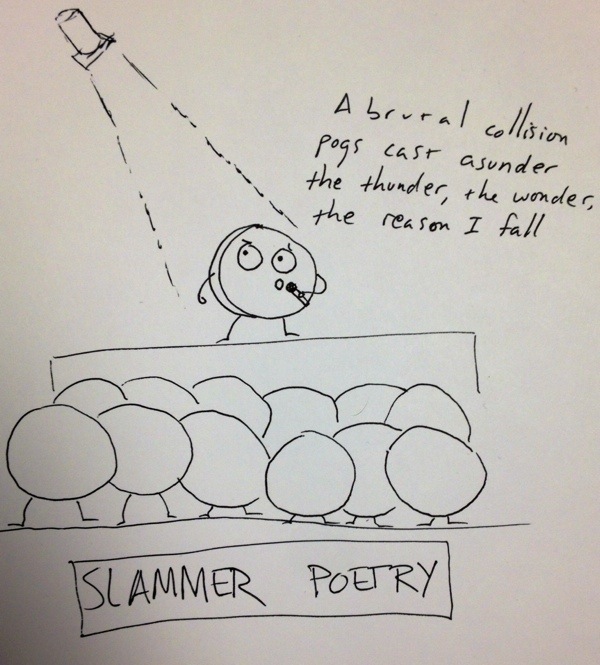 A brutal collision
pogs cast asunder
the thunder, the wonder,
the reason I fall
SLAMMER POETRY